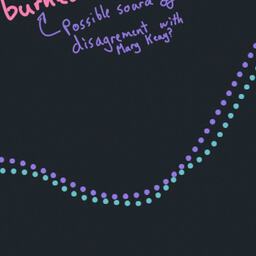 burne
Possible soard of
disagrement with
Mary Keay?